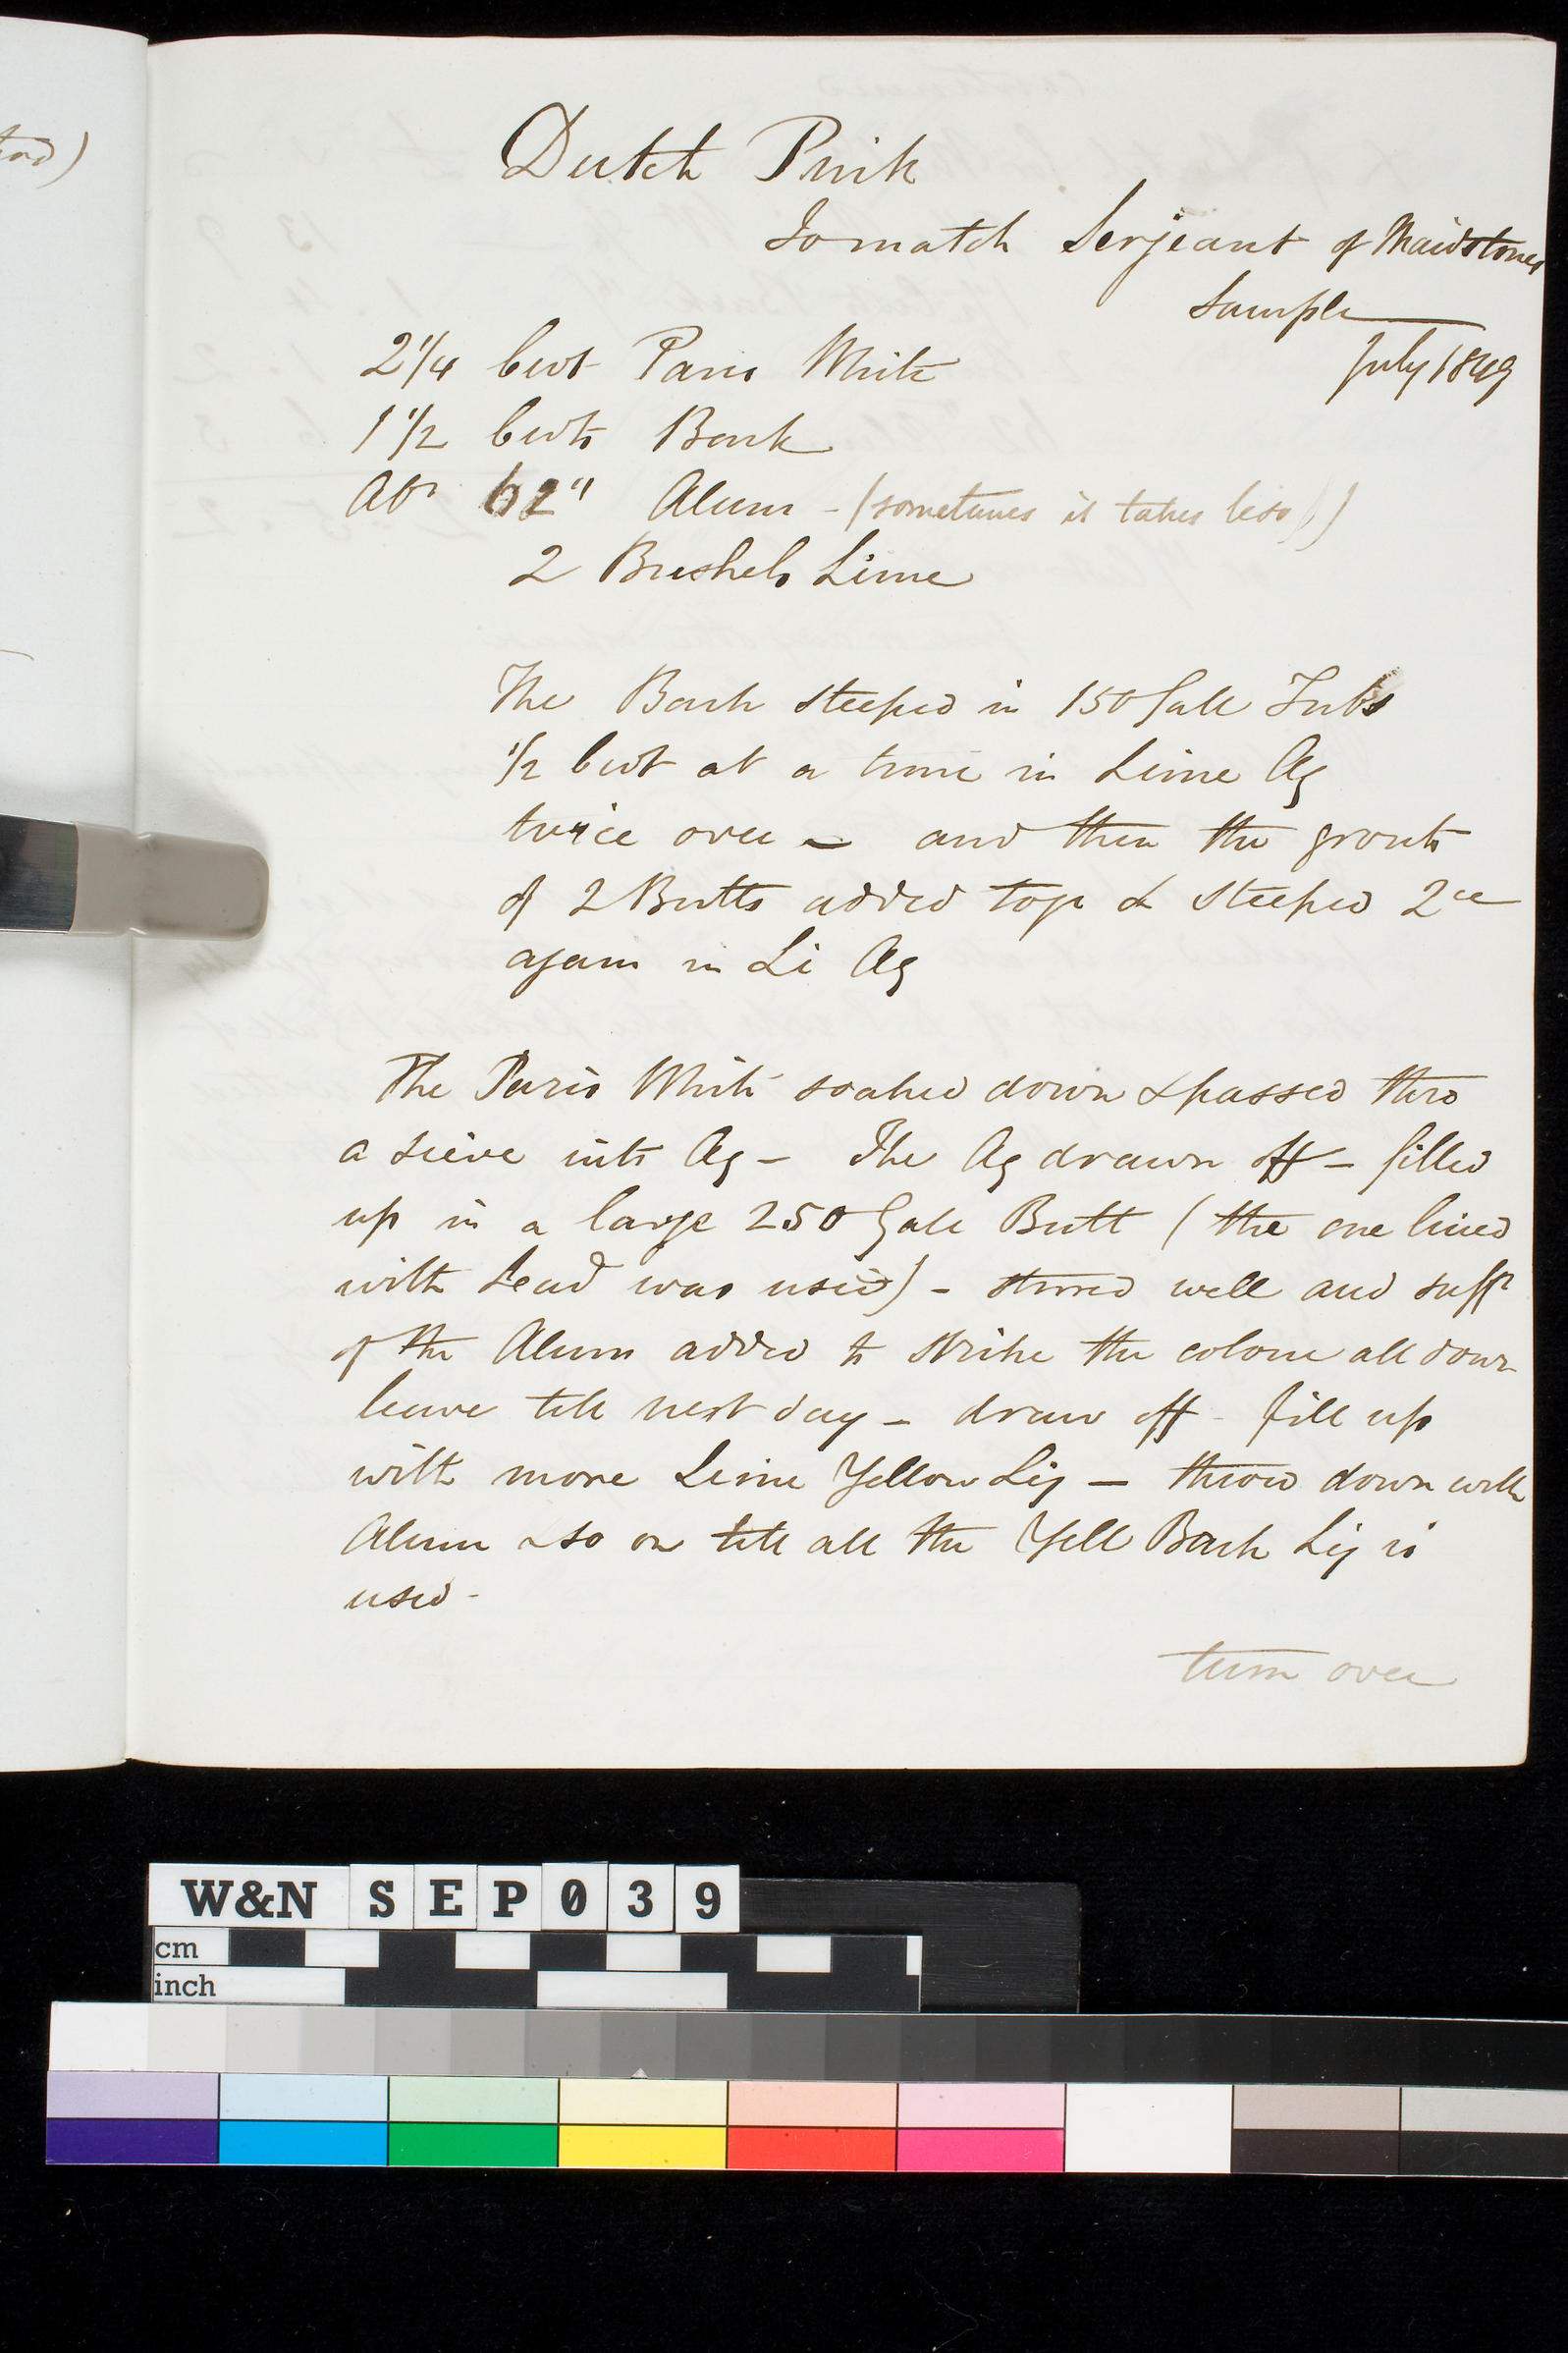 Dutch Pink
To match Serjeant of Maidstones
Sample
July 1849
2 1/4 Cwt Paris White
1 1/2 Cwts Bark
Abt 62" Alum - (sometimes it takes less)
2 Bushels Lime
The Bark steeped in 150 Gall Tubs
1/2 Cwt at a time in Lime Aq
twice over - and then the grouts
of 2 Butts added togr & steeped 2ce
again in Li Aq
The Paris White soaked down & passed thro
a sieve into Aq - The Aq drawn off - filled
up in a large 250 Gall Butt (the one lined
with Lead was used) - stirred well and sufft
of the Alum added to strike the colour all down
leave till next day - draw off - fill up
with more Lime Yellow Liq - throw down with
Alum & so on till all the Yell Bark Liq is
used -
turn over
W&N SEP039
cm
inch